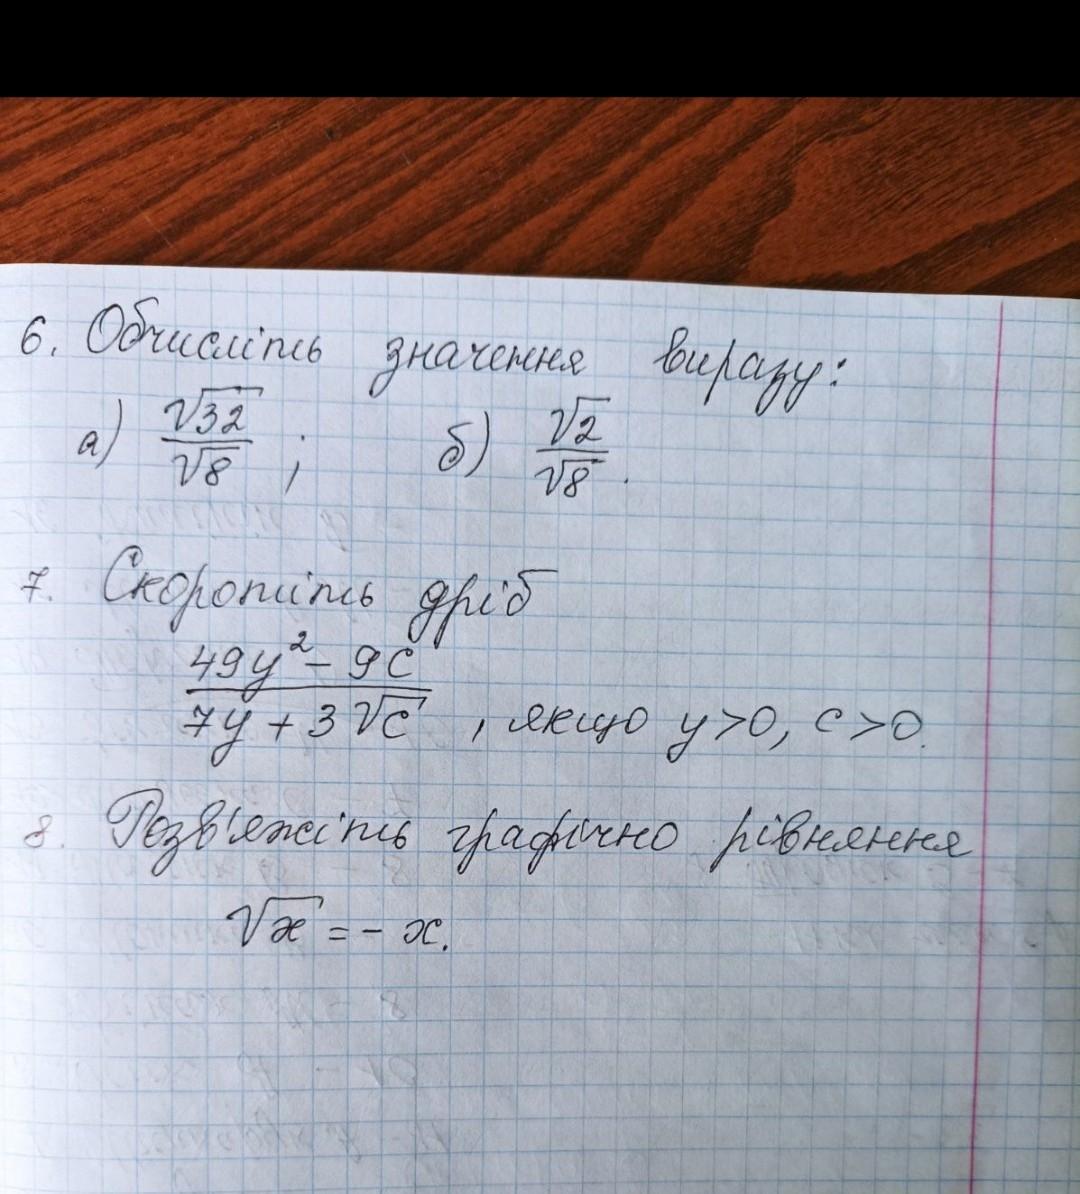 6. Обчисліть значення виразу:
а) √32/√8 ; б) √2/√8 .
7. Скоротіть дріб
49y² - 9c
7y + 3√c , якщо y>0, c>0.
8. Розв'яжіть графічно рівняння
√x = - x.